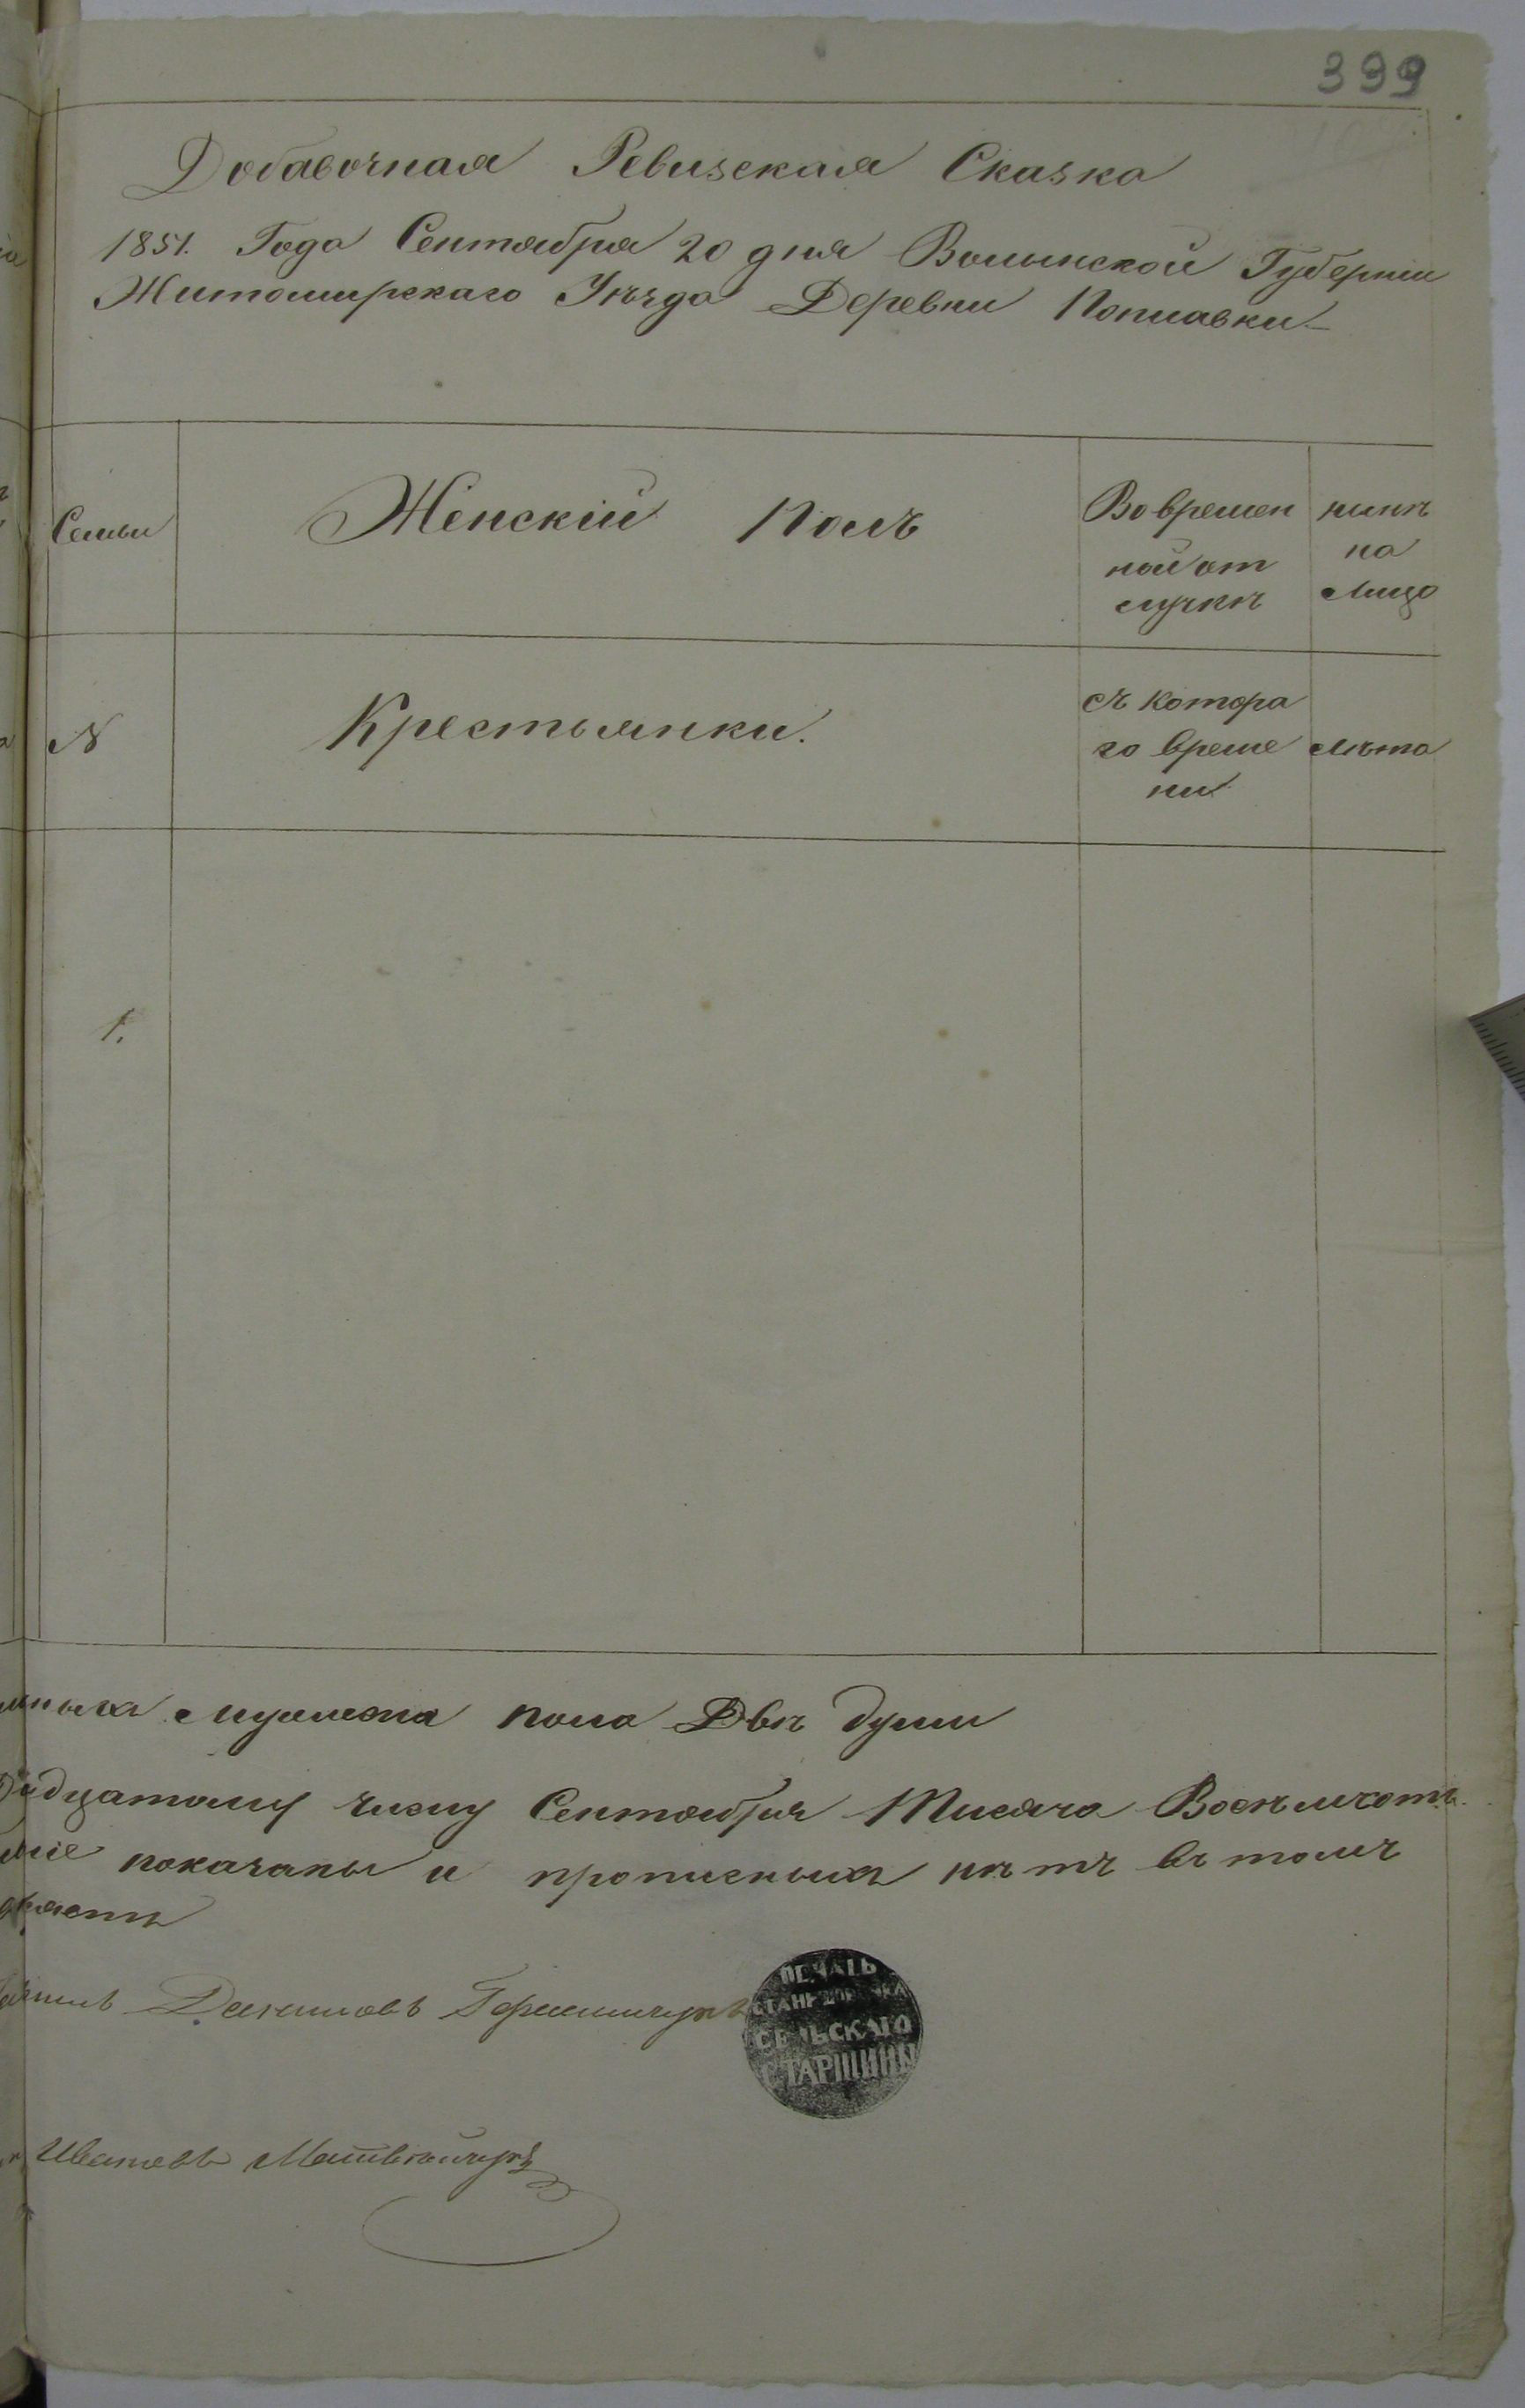 399
Добавочная Ревизская Сказка
1851. Года Сентября 20 дня Волынской Губерніи
Житомирскаго Уѣзда Деревни Поплавки
Семьи
Женскій Полъ
Во времен
ной от
лучкѣ
нынѣ
на
лицо
№
Крестьянки.
съ котора
го време
ни
лѣта
1.
мужеска пола Двѣ души
числу Сентября Тисяча Восемьсотъ
показаны и прописныхъ нѣтъ въ томъ
Ивановъ Матвѣйчукъ
ПЕЧАТЬ
СЕЛЬСКАГО
СТАРШИНЫ